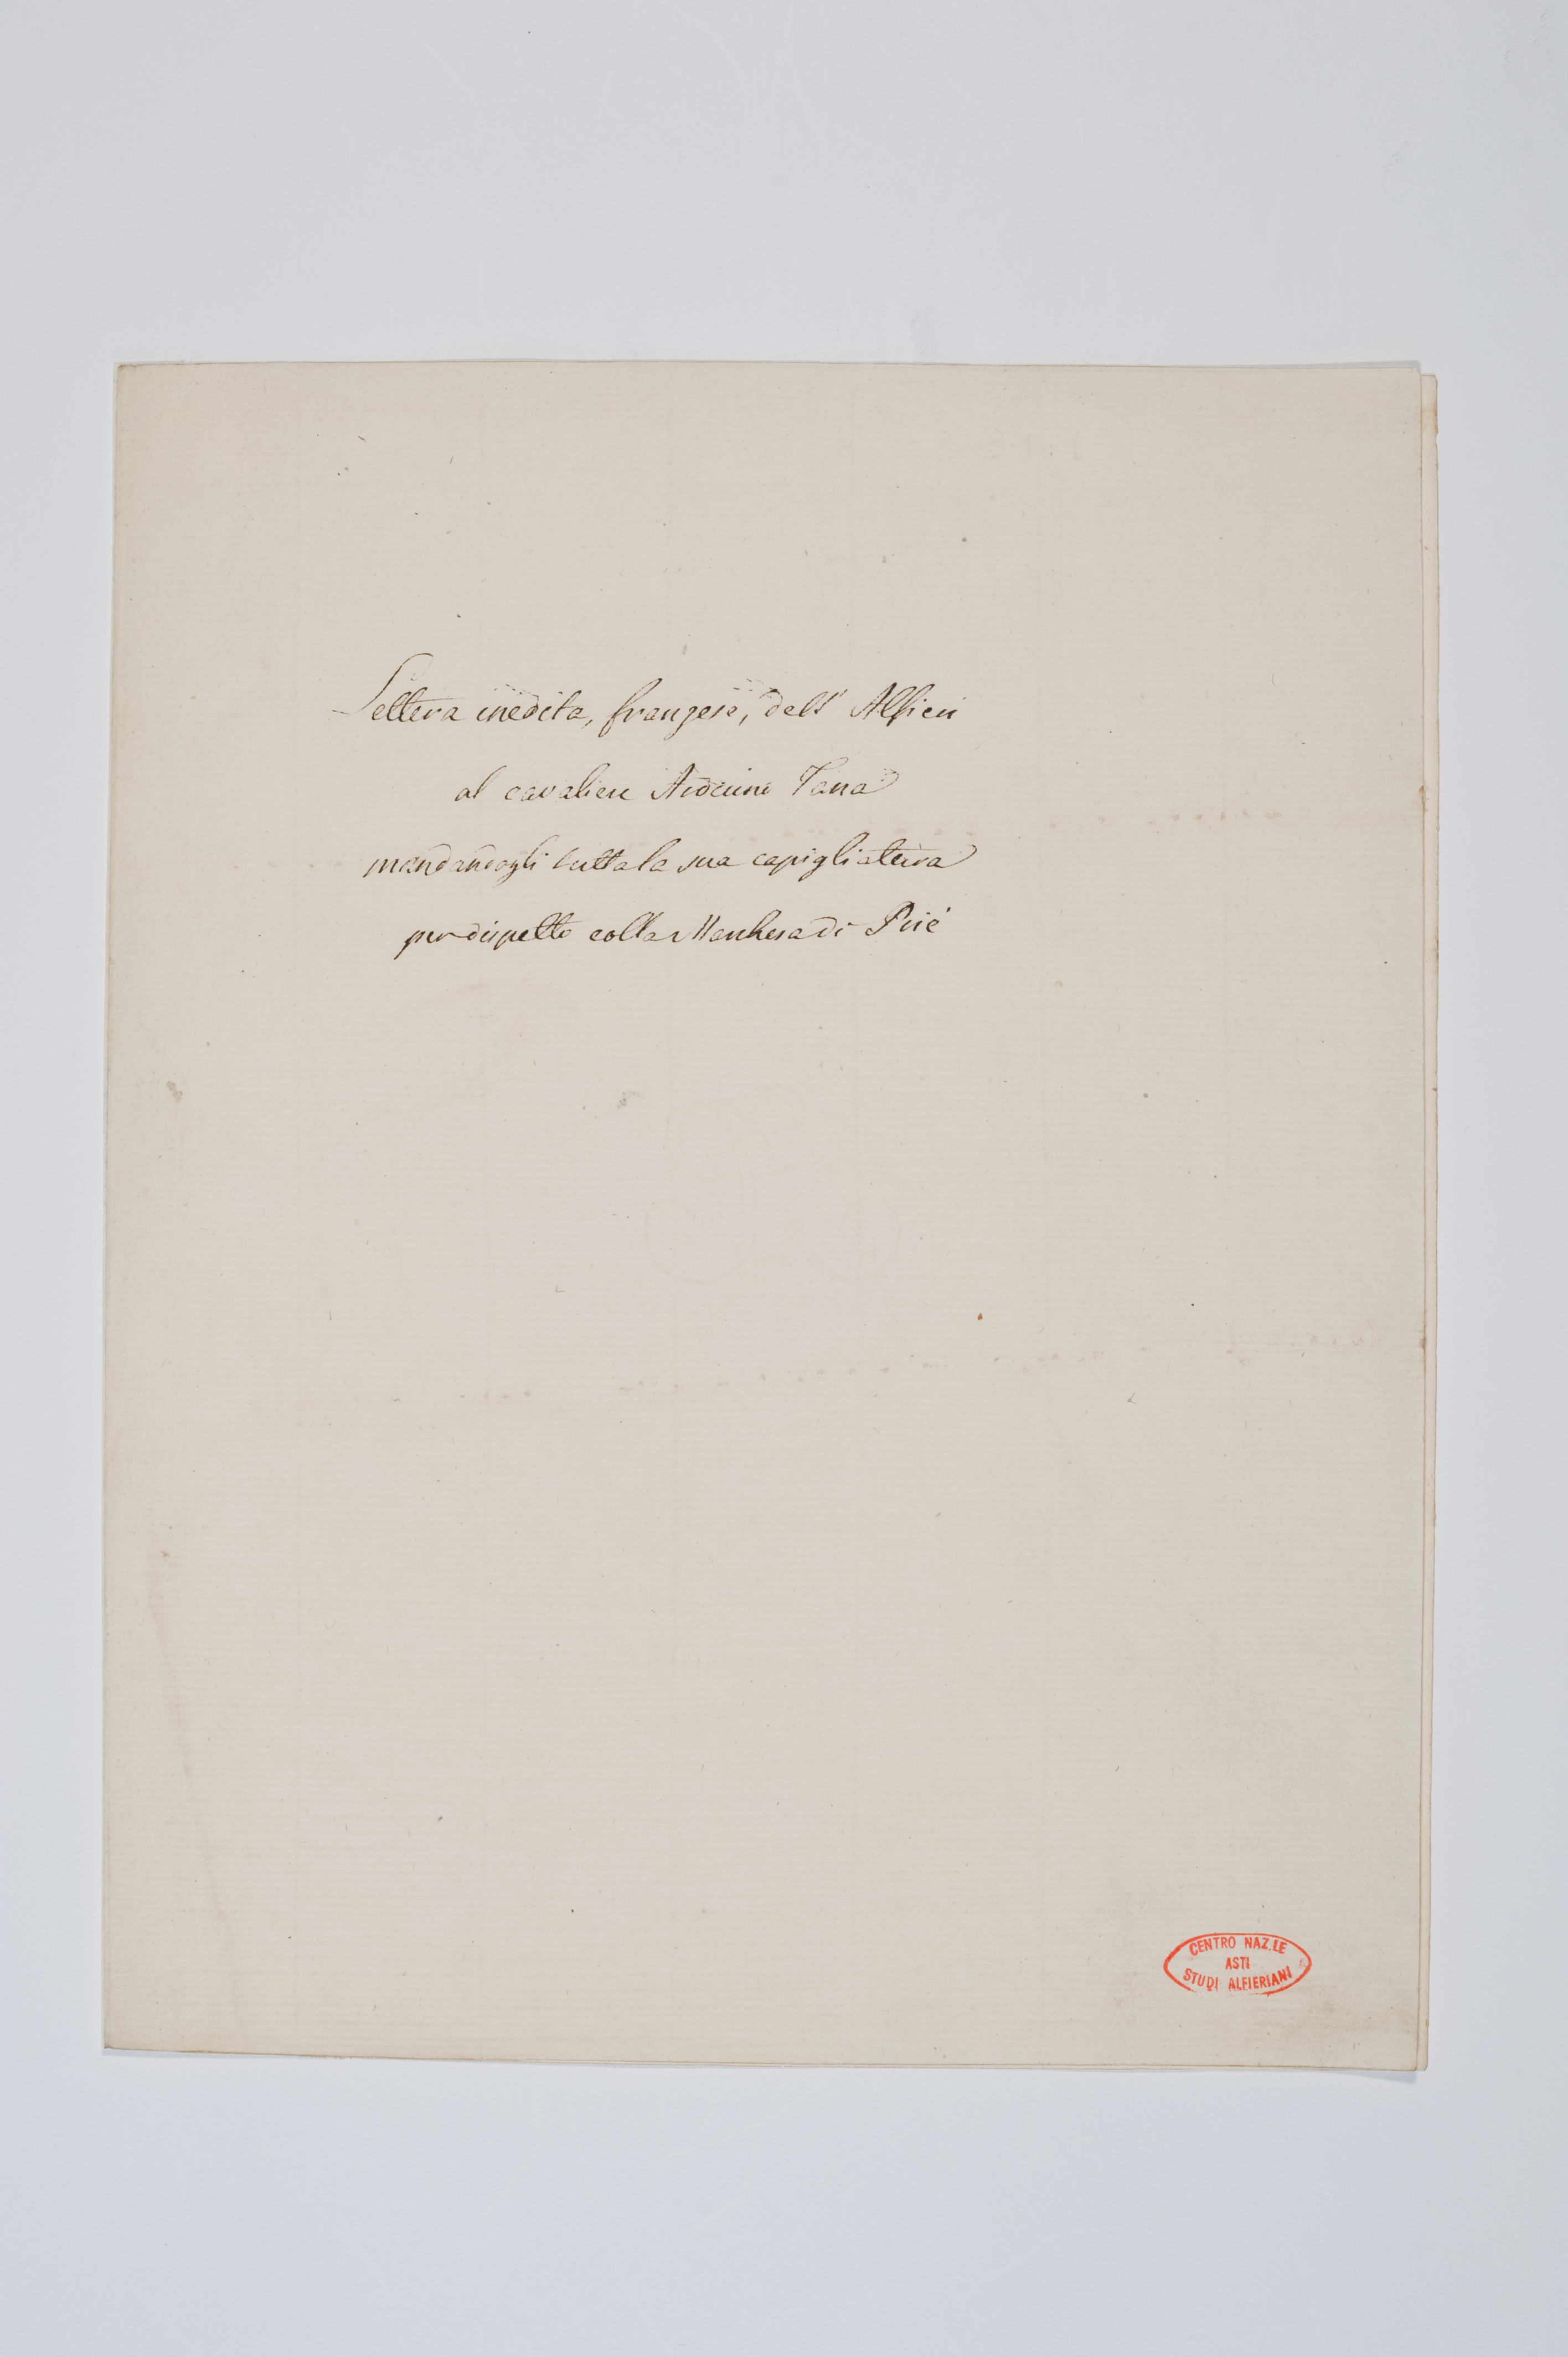 Lettera inedita, franzese, dell' Alfieri
al cavaliere Arduino Tana
mandandogli tutta la sua capigliatura
per dispetto colla Marchesa di Prié
CENTRO NAZ.LE
ASTI
STUDI ALFIERIANI